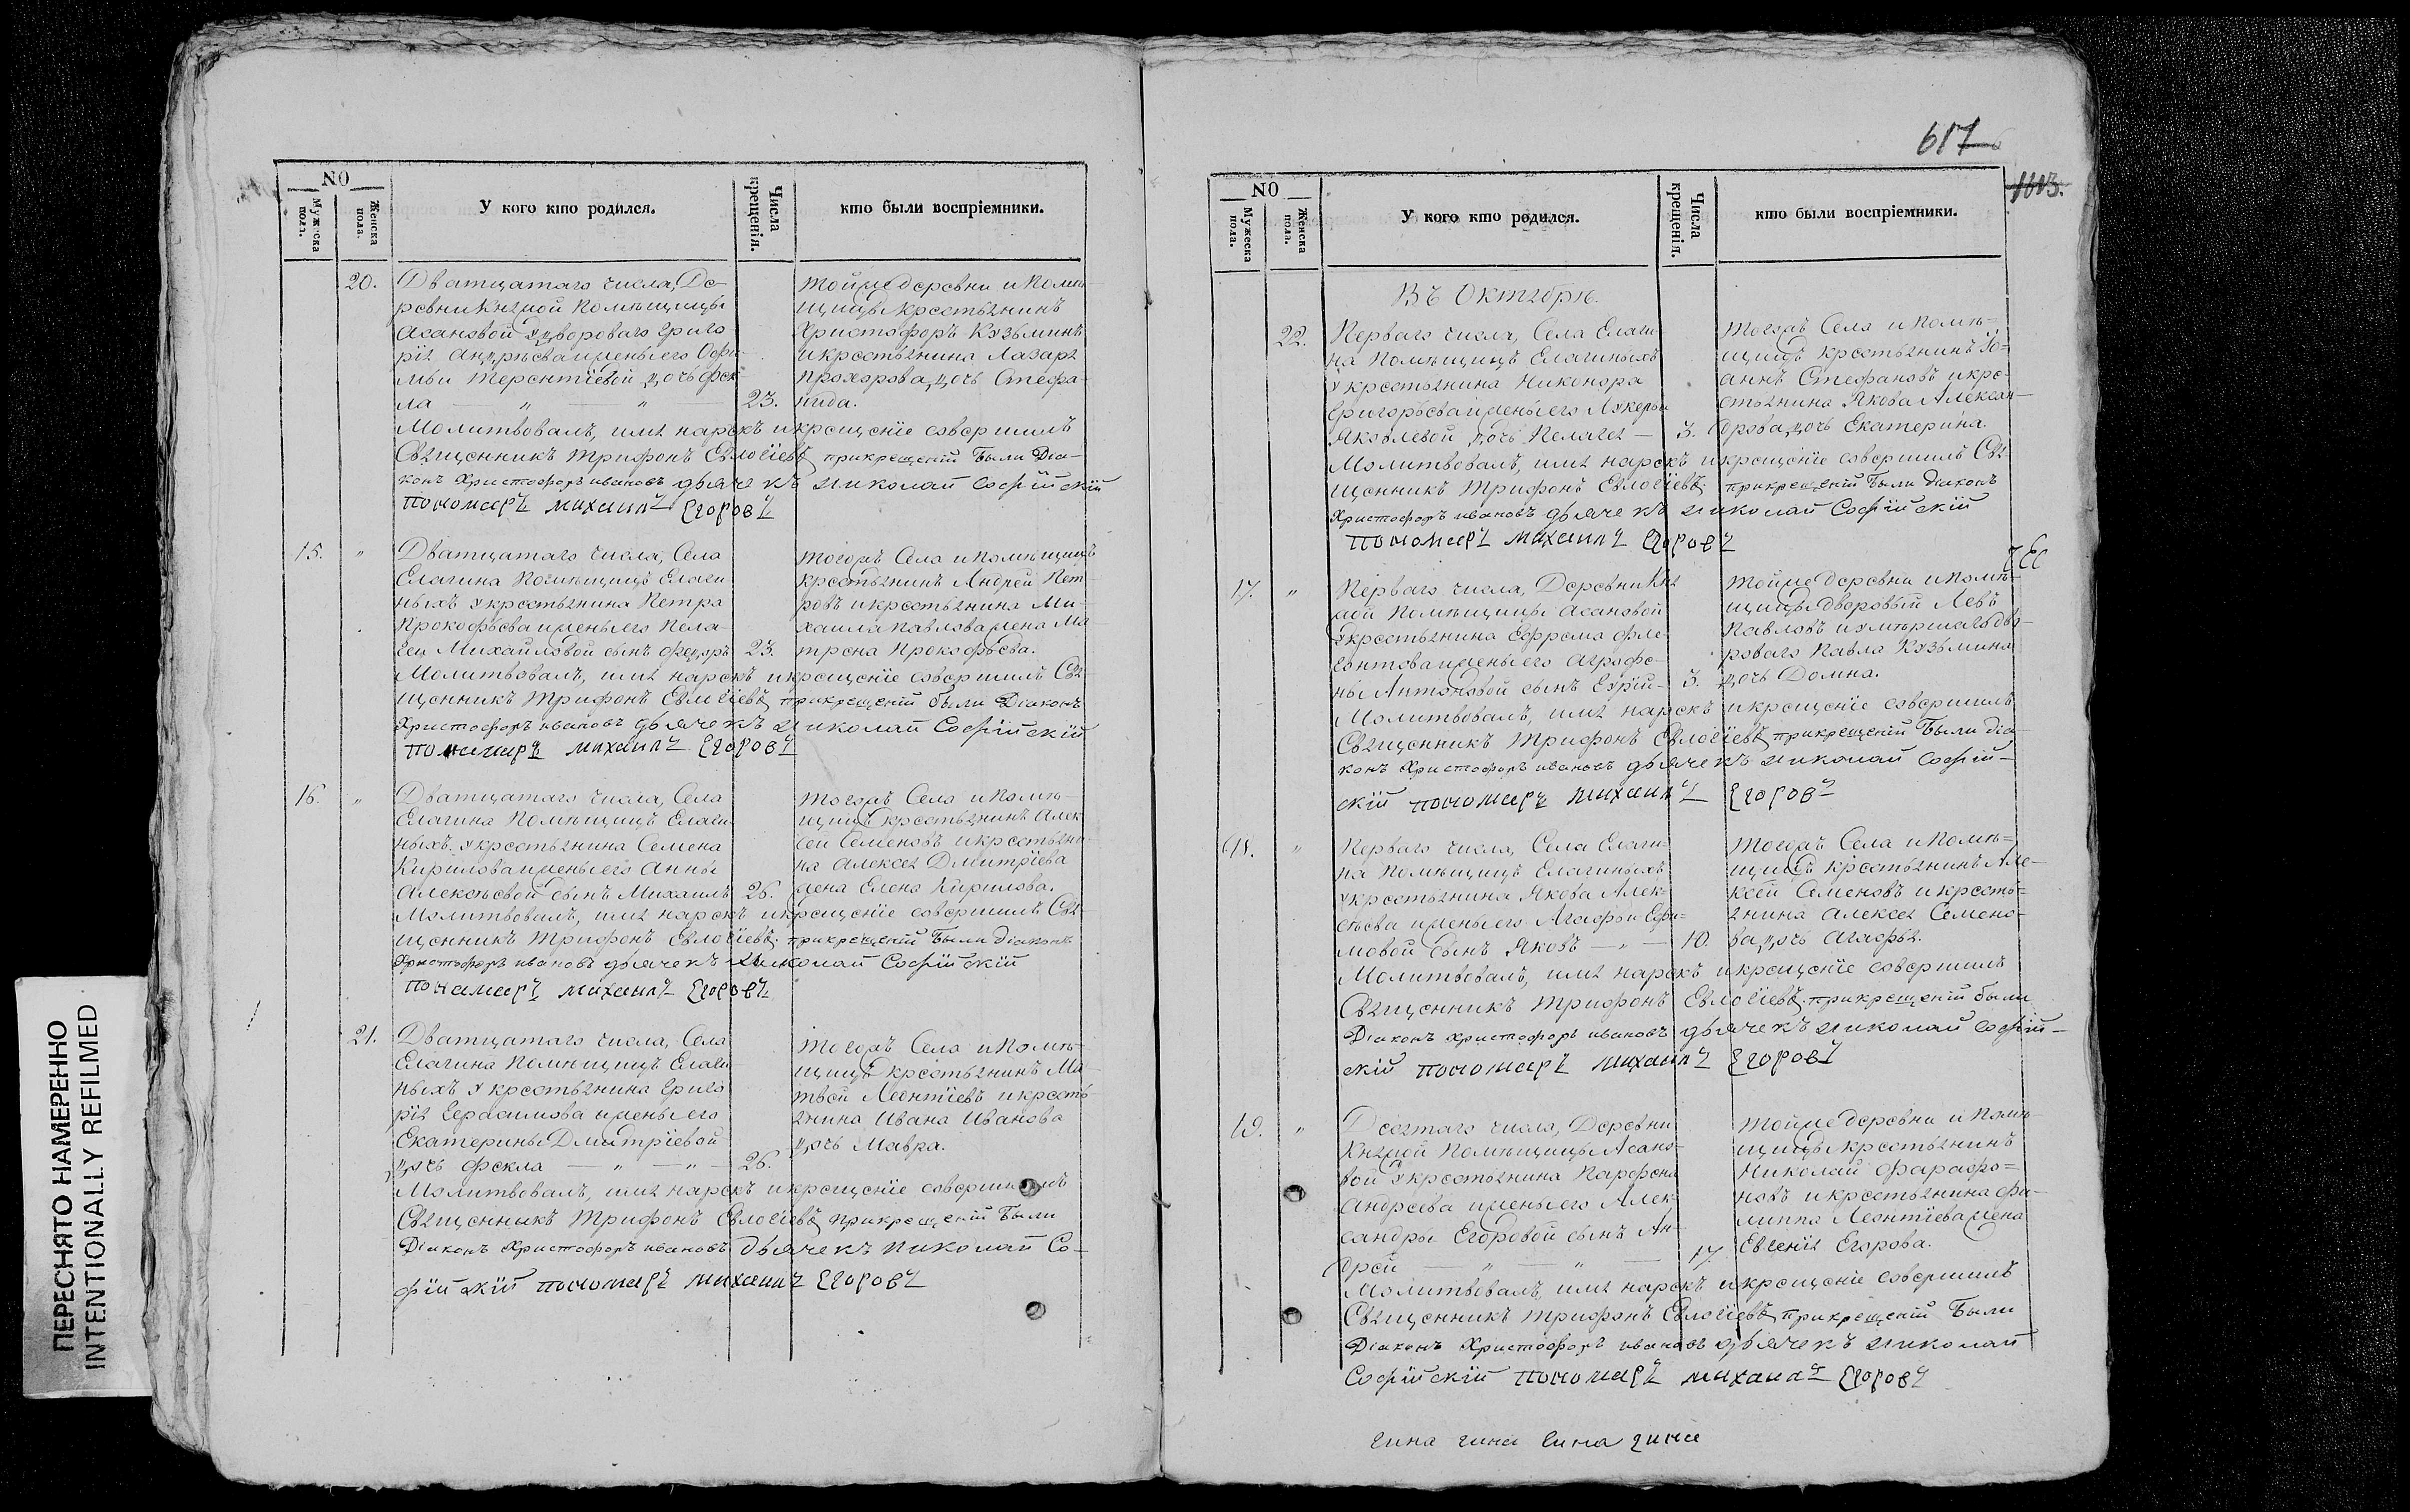 ПЕРЕСНЯТО НАМЕРЕННО
INTENTIONALLY REFILMED
NO
Мужеска пола.
Женска пола.
У кого кто родился.
Числа крещенія.
кто были воспріемники.
20.
Дватцатаго числа, Де-
ревни Княжой Помѣщицы
Асановой у двороваго Григо
рія Андрѣева и жены его Офи-
мьи Терентіевой дочь Фек
ла — " — " — 23.
тойже деревни и помѣ-
щицы крестьянинъ
Христофоръ Кузьминъ
и крестьянина Лазаря
Прохорова дочь Стефа-
нида.
Молитвовалъ, имя нарекъ и крещеніе совершилъ
Священникъ Трифонъ Евлогіевъ, при крещеніи были Діа-
конъ Христофоръ Ивановъ дьячекъ Николай Софійскій
пономарь Михаилъ Егоровъ
15. "
Дватцатаго числа, Села
Елагина Помѣщицъ Елаги-
ныхъ у крестьянина Петра
Прокофьева и жены его Пела-
геи Михайловой сынъ Федоръ 23.
тогожъ Села и помѣщицъ
крестьянинъ Андрей Пет-
ровъ и крестьянина Ми-
хаила Павлова жена Ма-
трена Прокофьева.
Молитвовалъ, имя нарекъ и крещеніе совершилъ Свя-
щенникъ Трифонъ Евлогіевъ, при крещеніи были Діаконъ
Христофоръ Ивановъ дьячекъ Николай Софійскій
пономарь Михаилъ Егоровъ
16. "
Дватцатаго числа, Села
Елагина Помѣщицъ Елаги-
ныхъ у крестьянина Семена
Кирилова и жены его Анны
Алексѣевой сынъ Михаилъ 26.
тогожъ Села и помѣ-
щицъ крестьянинъ Алек
сей Семеновъ и крестьяни-
на Алексея Дмитріева
жена Елена Кирилова.
Молитвовалъ, имя нарекъ и крещеніе совершилъ Свя-
щенникъ Трифонъ Евлогіевъ при крещеніи были Діаконъ
Христофоръ Ивановъ дьячекъ Николай Софійскій
пономарь Михаилъ Егоровъ
21.
Дватцатаго числа, Села
Елагина Помѣщицъ Елаги
ныхъ у крестьянина Григо
рія Герасимова и жены его
Екатерины Дмитріевой
дочь Фекла — " — " — 26.
тогожъ Села и помѣ-
щицъ крестьянинъ Ма-
твей Леонтіевъ и кресть-
янина Ивана Иванова
дочь Мавра.
Молитвовалъ, имя нарекъ и крещеніе совершилъ
Священникъ Трифонъ Евлогіевъ, при крещеніи были
Діаконъ Христофоръ Ивановъ дьячекъ Николай Со-
фійскій пономарь Михаилъ Егоровъ
617
NO
Мужеска пола.
Женска пола.
У кого кто родился.
Числа крещенія.
кто были воспріемники.
Въ Октябрѣ.
22.
Перваго числа, Села Елаги-
на Помѣщицъ Елагиныхъ
у крестьянина Никонора
Григорьева и жены его Лукерьи
Яковлевой дочь Пелагея — 3.
тогожъ Села и помѣ-
щицъ крестьянинъ Іо-
аннъ Стефановъ и кре-
стьянина Якова Алексан-
дрова дочь Екатерина.
Молитвовалъ, имя нарекъ и крещеніе совершилъ Свя-
щенникъ Трифонъ Евлогіевъ, при крещеніи были Діаконъ
Христофоръ Ивановъ дьячекъ Николай Софійскій
пономарь Михаилъ Егоровъ
17. "
Перваго числа, Деревни Кня
жой Помѣщицы Асановой
у крестьянина Ефрема Фле-
гонтова и жены его Аграфе-
ны Антоновой сынъ Еупій- 3.
тойже деревни и помѣ-
щицы дворовый Левъ
Павловъ и умершаго дво-
роваго Павла Кузьмина
дочь Домна.
Молитвовалъ, имя нарекъ и крещеніе совершилъ
Священникъ Трифонъ Евлогіевъ, при крещеніи были Діа-
конъ Христофоръ Ивановъ дьячекъ Николай Софій-
скій пономарь Михаилъ Егоровъ
18. "
Перваго числа, Села Елаги-
на Помѣщицъ Елагиныхъ
у крестьянина Якова Алек-
сѣева и жены его Агафьи Ефи-
мовой сынъ Яковъ — " — 10.
тогожъ Села и помѣ-
щицъ крестьянинъ Але-
ксей Семеновъ и кресть-
янина Алексея Семено-
ва дочь Агафья.
Молитвовалъ, имя нарекъ и крещеніе совершилъ
Священникъ Трифонъ Евлогіевъ. при крещеніи были
Діаконъ Христофоръ Ивановъ дьячекъ Николай Софій-
скій пономарь Михаилъ Егоровъ
19. "
Десятаго числа, Деревни
Княжой Помѣщицы Асано-
вой у крестьянина Парфена
Андреева и жены его Алек-
сандры Егоровой сынъ Ан-
дрей — " — " — 17.
тойже деревни и помѣ
щицы крестьянинъ
Николай Фарафо-
новъ и крестьянина Фи-
липпа Леонтіева жена
Евгенія Егорова.
Молитвовалъ, имя нарекъ и крещеніе совершилъ
Священникъ Трифонъ Евлогіевъ, при крещеніи были
Діаконъ Христофоръ Ивановъ дьячекъ Николай
Софійскій пономарь Михаилъ Егоровъ